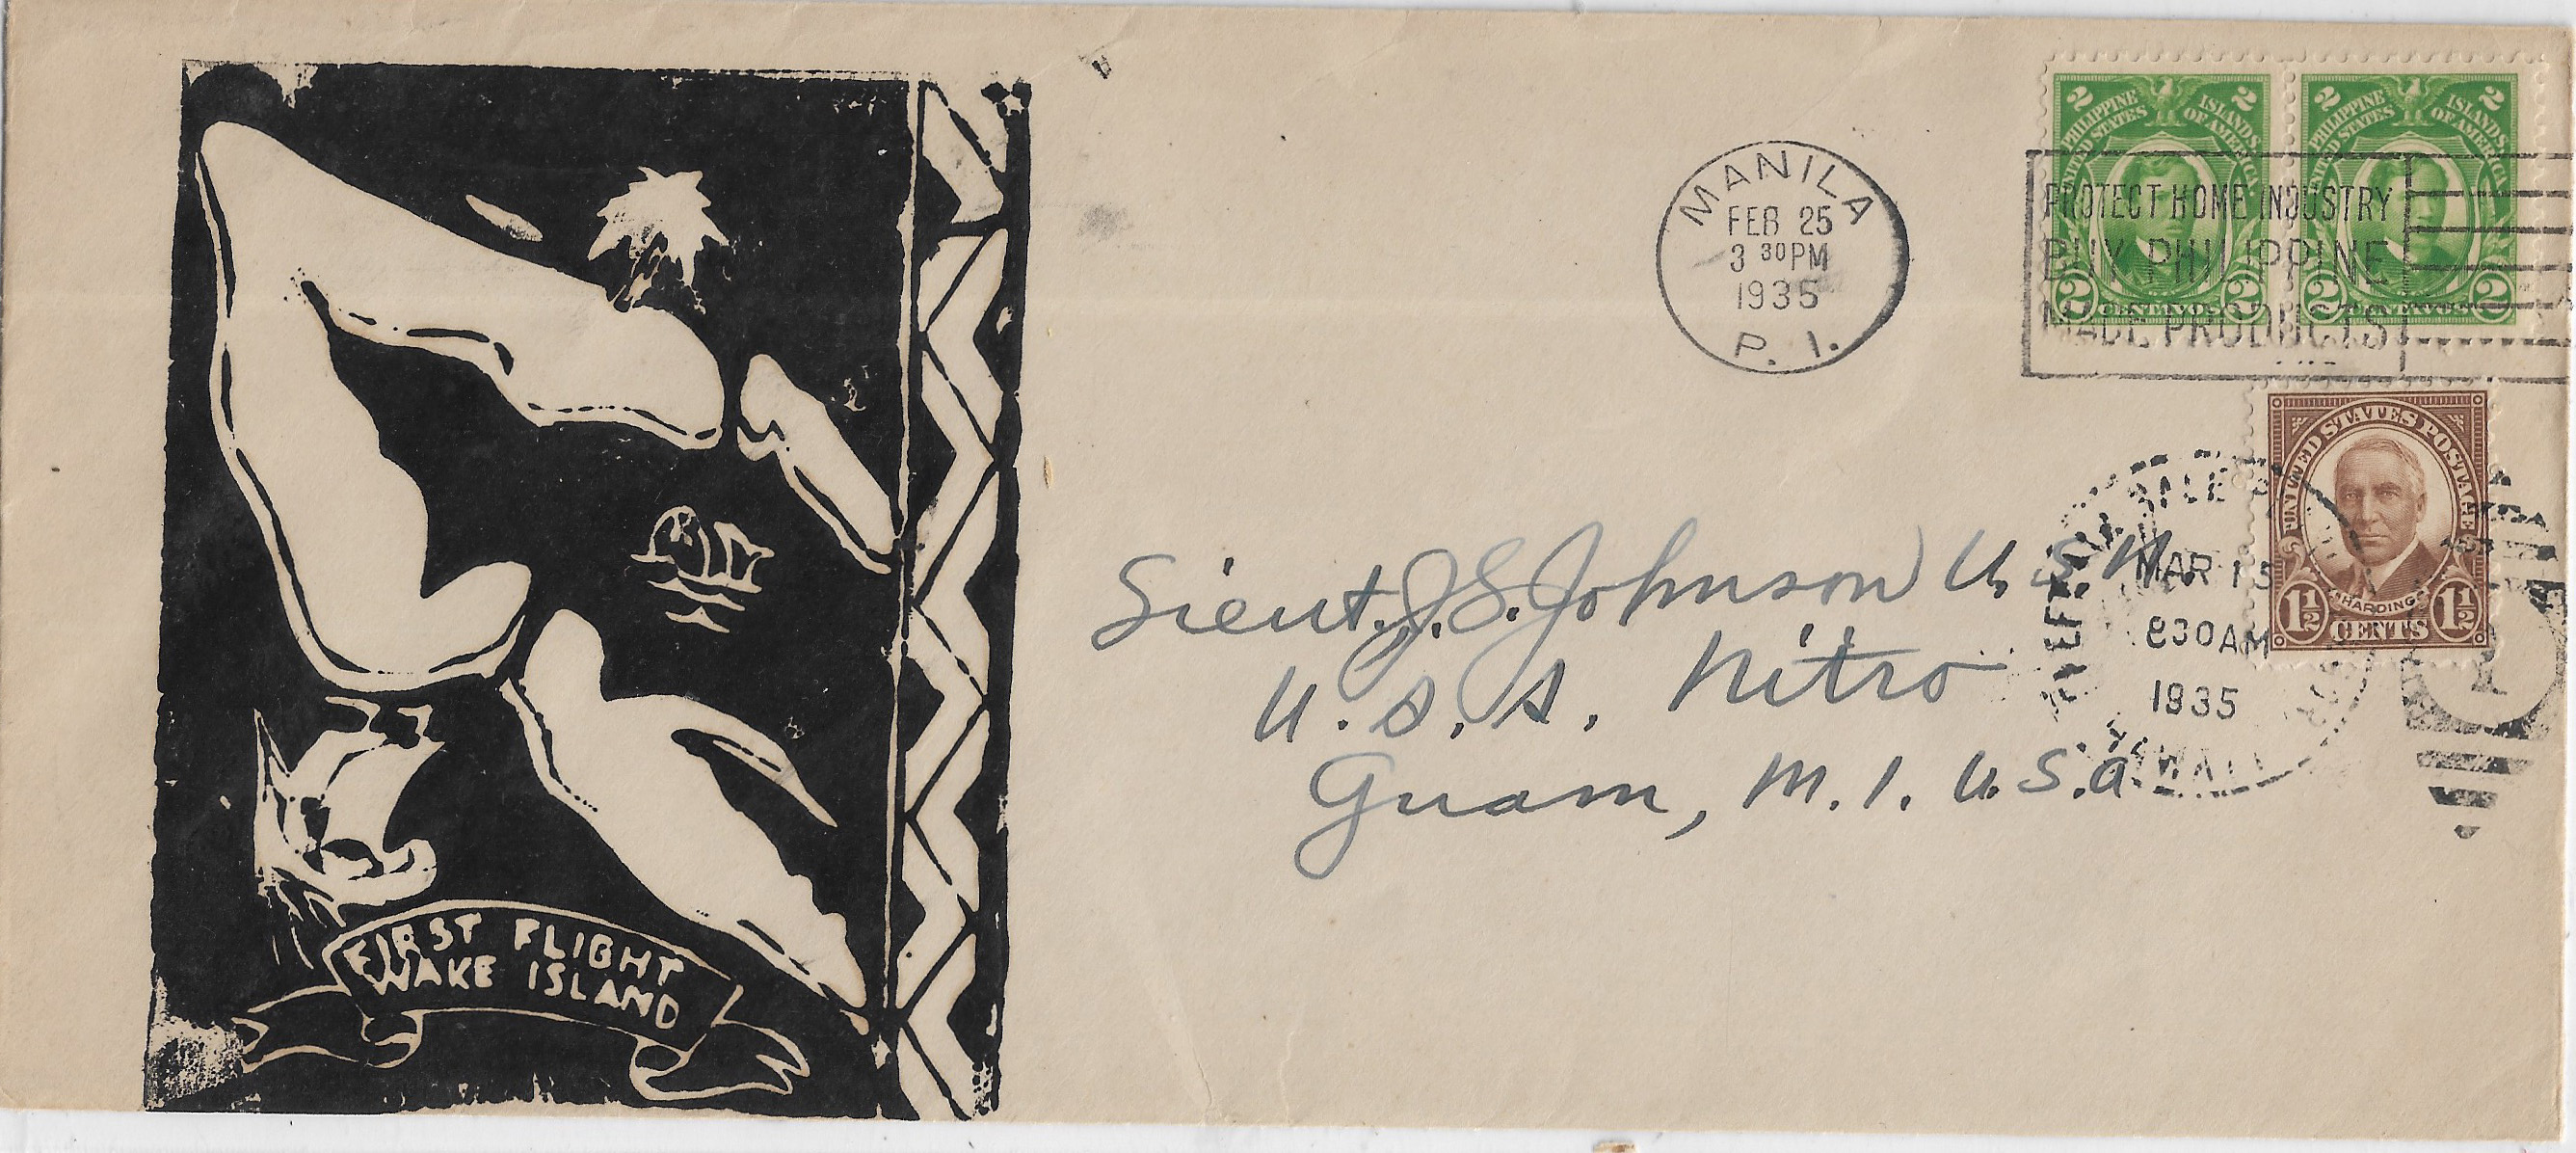 FIRST FLIGHT
WAKE ISLAND
MANILA
FEB 25
3 30PM
1935
P. I.
PROTECT HOME INDUSTRY
BUY PHILIPPINE
MADE PRODUCTS
2 PHILIPPINE ISLANDS 2
UNITED STATES OF AMERICA
2 CENTAVOS 2
2 PHILIPPINE ISLANDS 2
UNITED STATES OF AMERICA
2 CENTAVOS 2
UNITED STATES POSTAGE
HARDING
1½ CENTS 1½
MAR 15
830AM
1935
Lieut. J. S. Johnson U.S.N.
U.S.S. Nitro
Guam, M.I. U.S.A